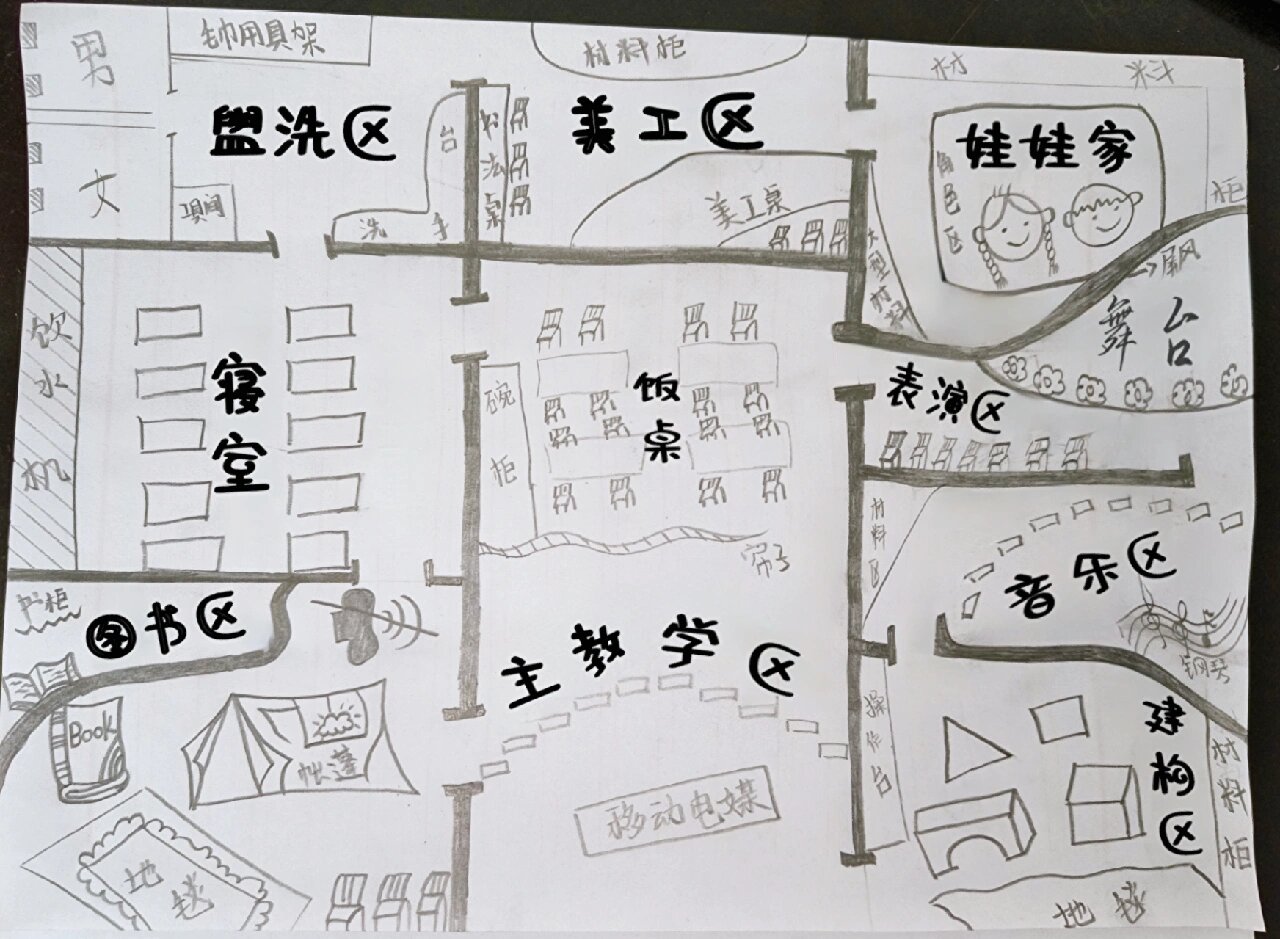 男
钟用具架
材料柜
材 料
盥洗区
台
书法桌
美工区
娃娃家
角色区
柜
文
洗 手
美工桌
大型材料
屏风
舞台
饮水机
寝室
碗柜
饭桌
表演区
材料区
帘子
音乐区
钢琴
书柜
图书区
主教学区
Book
帐篷
操作台
建构区
材料柜
移动电媒
地毯
地毯